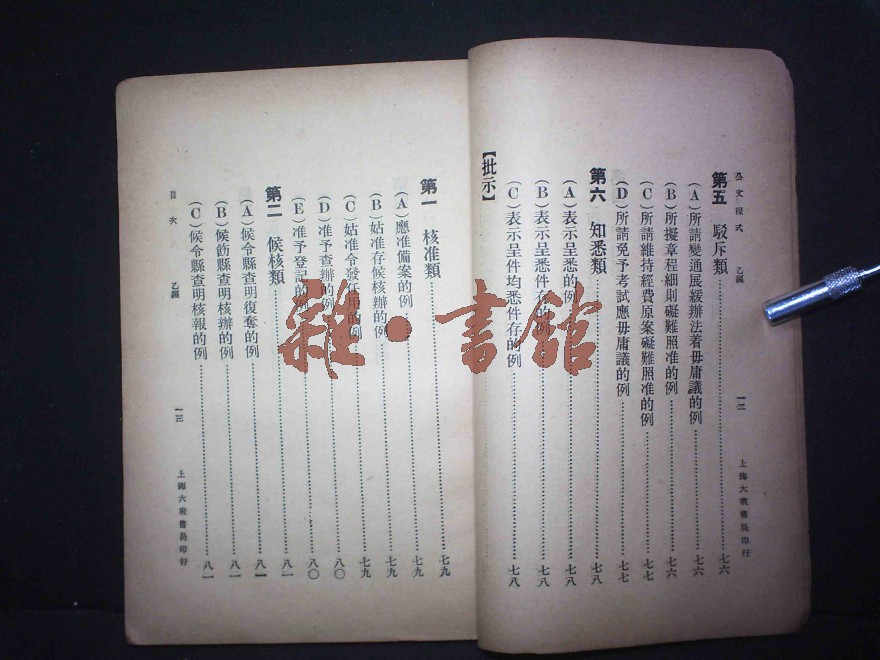 公文程式 乙編 一二 上海大衆書局印行
第五 駁斥類 七六
(A)所請變通展緩辦法着毋庸議的例 七六
(B)所擬章程細則礙難照准的例 七六
(C)所請維持經費原案礙難照准的例 七七
(D)所請免予考試應毋庸議的例 七七
第六 知悉類 七八
(A)表示呈悉的例 七八
(B)表示呈悉件存的例 七八
(C)表示呈件均悉件存的例 七八
【批示】
第一 核准類 七九
(A)應准備案的例 七九
(B)姑准存候核辦的例 七九
(C)姑准令發任用的例 八〇
(D)准予查辦的例 八〇
(E)准予登記的例 八〇
第二 候核類 八一
(A)候令縣查明復奪的例 八一
(B)候飭縣查明核辦的例 八一
(C)候令縣查明核報的例 八一
目次 乙編 一三 上海大衆書局印行
雜·書館